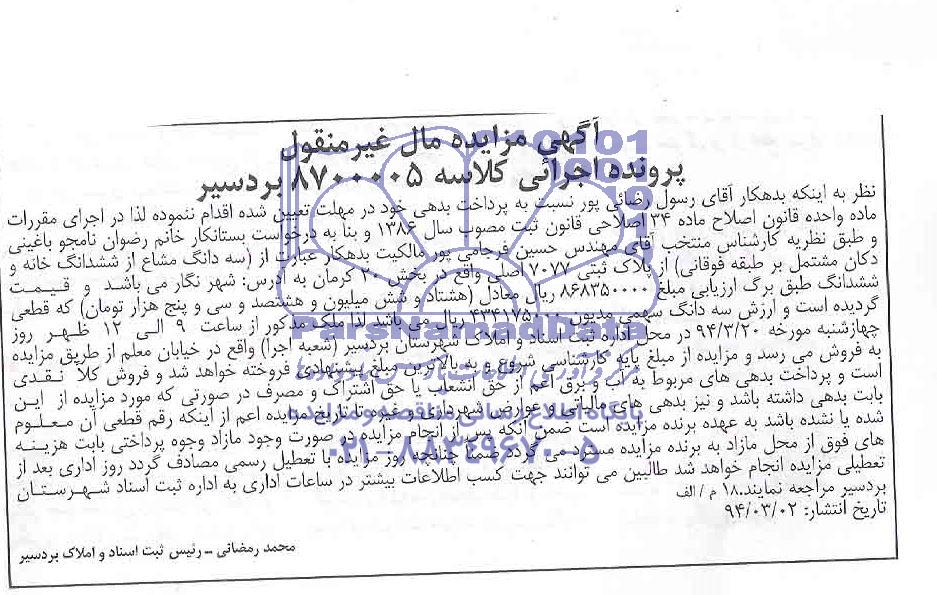 آگهی مزایده مال غیرمنقول
پرونده اجرائی کلاسه ۸۷۰۰۰۰۵ بردسیر
نظر به اینکه بدهکار آقای رسول رضائی پور نسبت به پرداخت بدهی خود در مهلت تعیین شده اقدام ننموده لذا در اجرای مقررات
ماده واحده قانون اصلاح ماده ۳۴ اصلاحی قانون ثبت مصوب سال ۱۳۸۶ و بنا به درخواست بستانکار خانم رضوان نامجو باغینی
و طبق نظریه کارشناس منتخب آقای مهندس حسین فرجامی پور مالکیت بدهکار عبارت از (سه دانگ مشاع از ششدانگ خانه و
دکان مشتمل بر طبقه فوقانی) از پلاک ثبتی ۷۰۷۷ اصلی واقع در بخش ۲۰ کرمان به آدرس: شهر نگار می باشد و قیمت
ششدانگ طبق برگ ارزیابی مبلغ ۸۶۸۳۵۰۰۰۰ ریال معادل (هشتاد و شش میلیون و هشتصد و سی و پنج هزار تومان) که قطعی
گردیده است و ارزش سه دانگ سهمی مدیون ۴۳۴۱۷۵۰۰۰ ریال می باشد لذا ملک مذکور از ساعت ۹ الی ۱۲ ظهر روز
چهارشنبه مورخه ۹۴/۳/۲۰ در محل اداره ثبت اسناد و املاک شهرستان بردسیر (شعبه اجرا) واقع در خیابان معلم از طریق مزایده
به فروش می رسد و مزایده از مبلغ پایه کارشناسی شروع و به بالاترین مبلغ پیشنهادی فروخته خواهد شد و فروش کلا نقدی
است و پرداخت بدهی های مربوط به آب و برق اعم از حق انشعاب یا حق اشتراک و مصرف در صورتی که مورد مزایده از این
بابت بدهی داشته باشد و نیز بدهی های مالیاتی و عوارض شهرداری و غیره تا تاریخ مزایده اعم از اینکه رقم قطعی آن معلوم
شده یا نشده باشد به عهده برنده مزایده است ضمن آنکه پس از انجام مزایده در صورت وجود مازاد وجوه پرداختی بابت هزینه
های فوق از محل مازاد به برنده مزایده مسترد می گردد ضمنا چنانچه روز مزایده با تعطیل رسمی مصادف گردد روز اداری بعد از
تعطیلی مزایده انجام خواهد شد طالبین می توانند جهت کسب اطلاعات بیشتر در ساعات اداری به اداره ثبت اسناد شهرستان
بردسیر مراجعه نمایند.۱۸ م / الف
تاریخ انتشار: ۹۴/۰۳/۰۲
محمد رمضانی – رئیس ثبت اسناد و املاک بردسیر
ParsNamadData
پایگاه اطلاع رسانی مناقصه و مزایده
۰۲۱-۸۸۳۴۹۶۷۰-۵